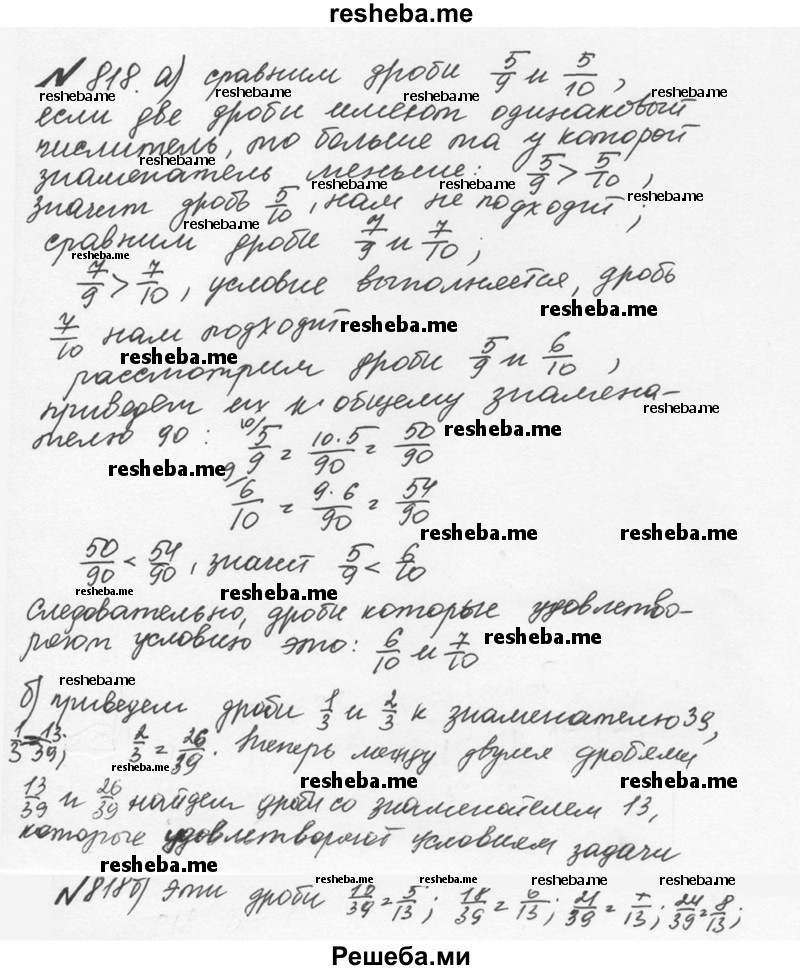 resheba.me
№ 818. а) сравним дроби 5/9 и 5/10,
resheba.me resheba.me resheba.me resheba.me
если две дроби имеют одинаковый
числитель, то больше та у которой
resheba.me
знаменатель меньше: 5/9 > 5/10,
resheba.me resheba.me
значит дробь 5/10, нам не подходит;
resheba.me
сравним дроби 7/9 и 7/10;
resheba.me
7/9 > 7/10, условие выполняется, дробь
resheba.me
7/10 нам подходит
resheba.me
resheba.me
рассмотрим дроби 5/9 и 6/10,
приведем их к общему знамена-
resheba.me
телю 90: 10/ 5/9 = 10·5/90 = 50/90
resheba.me
resheba.me
9/ 6/10 = 9·6/90 = 54/90
resheba.me resheba.me
50/90 < 54/90, значит 5/9 < 6/10
resheba.me resheba.me
Следовательно, дроби которые удовлетво-
ряют условию это: 6/10 и 7/10
resheba.me
resheba.me
б) приведем дроби 1/3 и 2/3 к знаменателю 39,
1/3 = 13/39, 2/3 = 26/39. Теперь между двумя дробями
resheba.me
resheba.me resheba.me
13/39 и 26/39 найдем дроби со знаменателем 13,
которые удовлетворяют условиям задачи
resheba.me
resheba.me resheba.me
№ 818 б) Эти дроби = 5/13; 18/39 = 6/13; 21/39 = 7/13; 24/39 = 8/13;
Решеба.ми